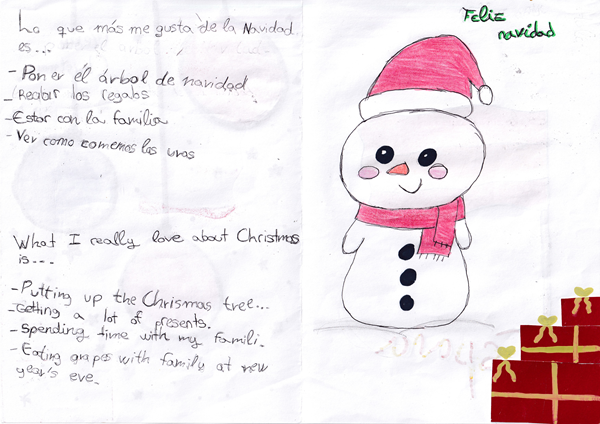 Lo que más me gusta de la Navidad
es...
- Poner él árbol de navidad
- Recibir los regalos
- Estar con la familia
- Ver como comemos las uvas
What I really love about Christmas
is...
- Putting up the Chrismas tree...
- Getting a lot of presents.
- Spending time with my famili.
- Eating grapes with family at new
year's eve.
Feliz
navidad